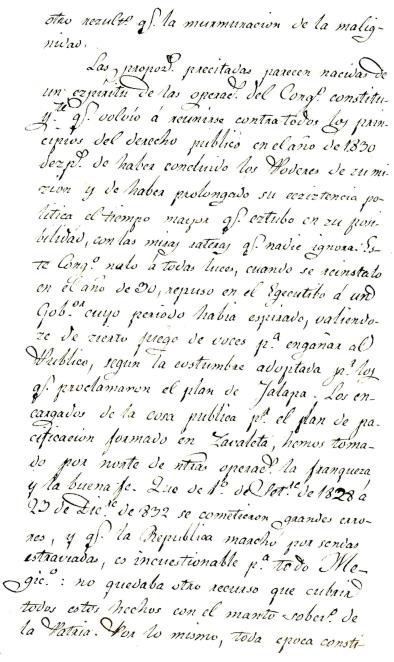 otro rezultº. qᵉ. la murmuracion de la malig-
nidad.
Las propozˢ. precitadas parecen nacidas de
un ezpiritu de las operacˢ. del Congº. constitu-
yᵗᵉ. qᵉ. volvió á reunirse contra todos los prin-
cipios del derecho publico en el año de 1830
dezpˢ. de haber concluido los Poderes de su mi-
zion y de haber prolongado su ecziztencia po-
litica el tiempo mayor qᵉ. eztubo en su pozi-
bilidad, con las miras rateras qᵉ. nadie ignora. Es-
te Congº. nulo á todas luces, cuando se reinstaló
en el año de 30, repuso en el Egecutibo á un
Gobᵒʳ. cuyo periodo habia espirado, valiendo-
ze de zierto juego de voces pᵃ. engañar al
Publico, segun la costumbre adoptada pʳ. los
qᵉ. proclamaron el plan de Jalapa. Los en-
cargados de la coza publica pʳ. el plan de pa-
cificacion formado en Zavaleta, hemos toma-
do por norte de ntras operacˢ. la franqueza
y la buena fe. Que de 1º. de Setᵗᵉ. de 1828 á
23 de Dicᵉ. de 832 se cometieron grandes erro-
res, y qᵉ. la Republica marchó por sendas
estraviadas, es incuestionable pᵃ. todo Me-
gicº.: no quedaba otro recurso que cubrir
todos estos hechos con el manto soberº. de
la Patria. Por lo mismo, toda epoca consti